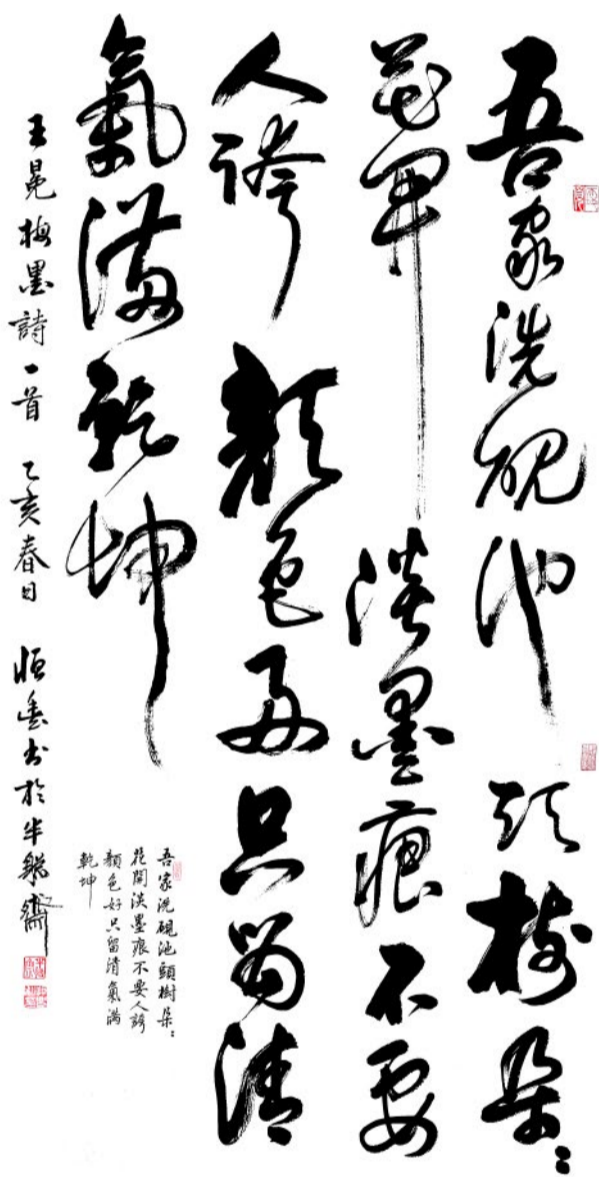 吾家洗硯池頭樹朵〻
花開淡墨痕不要
人誇顏色好只留清
氣滿乾坤
吾家洗硯池頭樹朵〻
花開淡墨痕不要人誇
顏色好只留清氣滿
乾坤
王冕梅墨詩一首 乙亥春日 恒书於半齋